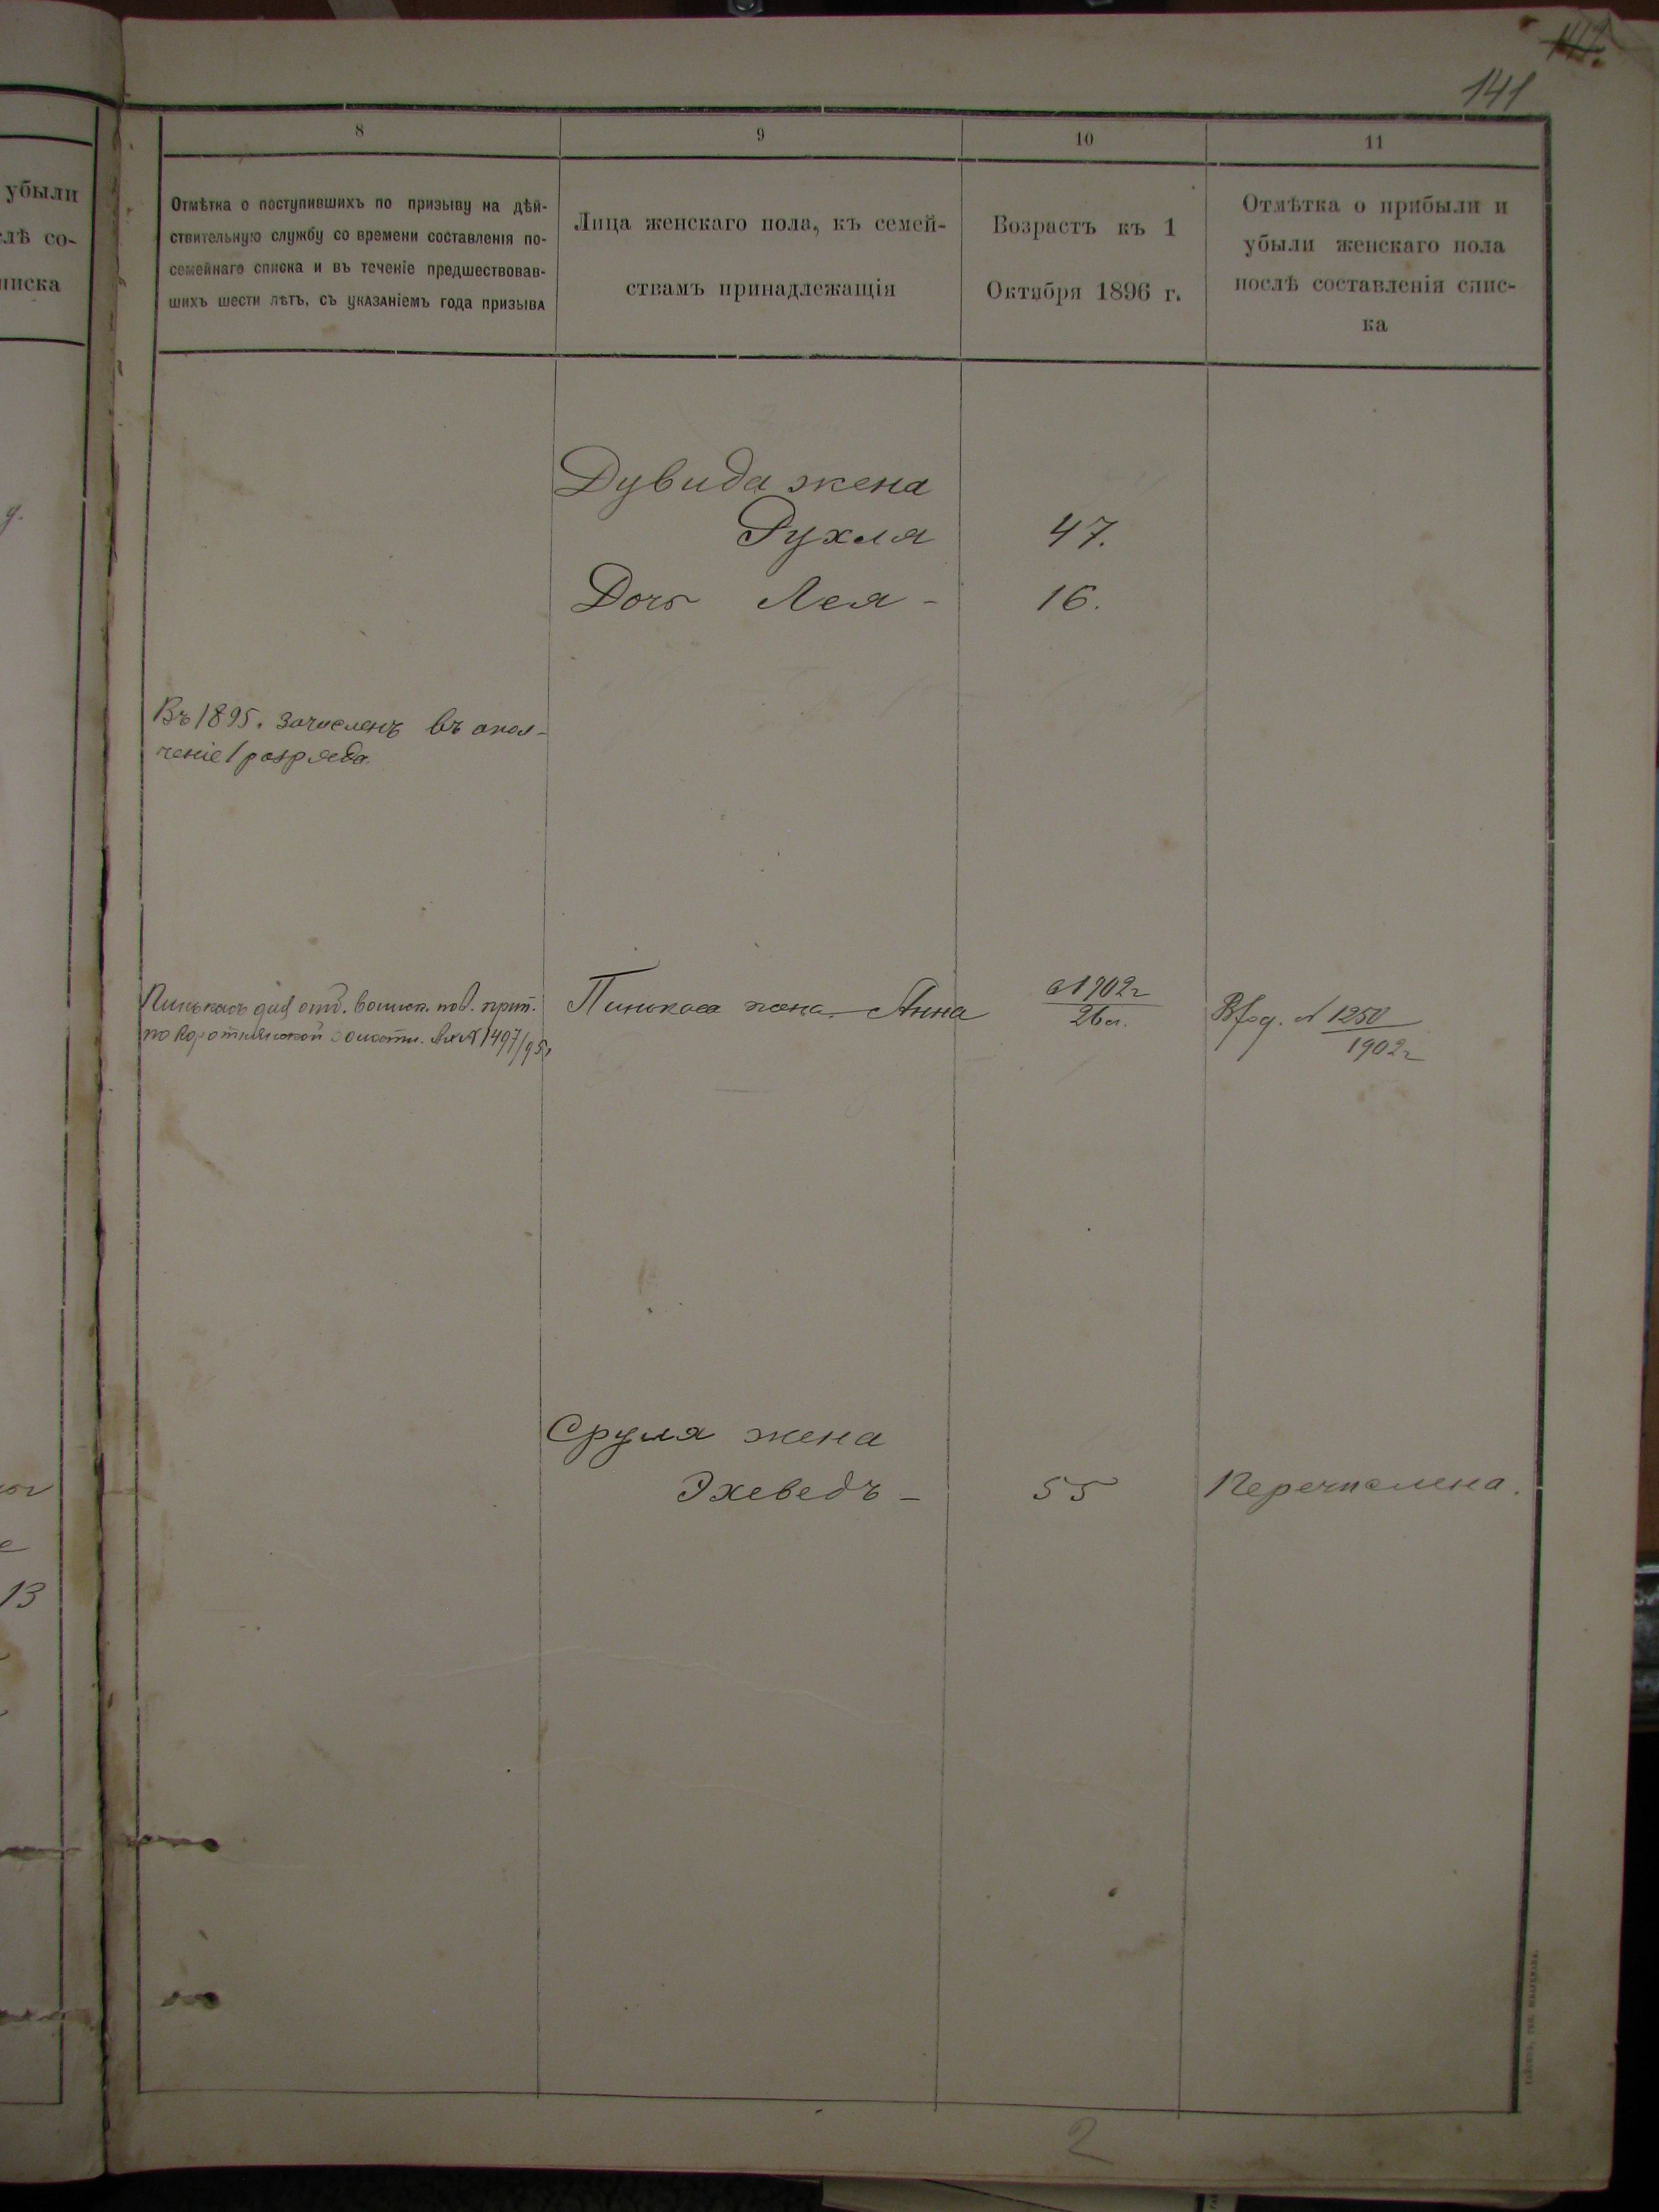 141
убыли
лѣ со-
писка
8
9
10
11
Отмѣтка о поступившихъ по призыву на дѣй-
ствительную службу со времени составленія по-
семейнаго списка и въ теченіе предшествовав-
шихъ шести лѣтъ, съ указаніемъ года призыва
Лица женскаго пола, къ семей-
ствамъ принадлежащія
Возрастъ къ 1
Октября 1896 г.
Отмѣтка о прибыли и
убыли женскаго пола
послѣ составленія спис-
ка
Дувида жена
Рухля 47.
Дочь Лея - 16.
Въ 1895. зачисленъ въ опол-
ченіе 1 разряда.
Пинькасъ для отб. воинск. пов. прип.
по волости. 1497/95
Пинькаса жена Анна
1902г
26 л.
№ 1250
1902г
Сруля жена
Эхеведъ - 55 Перечислена.
13
2